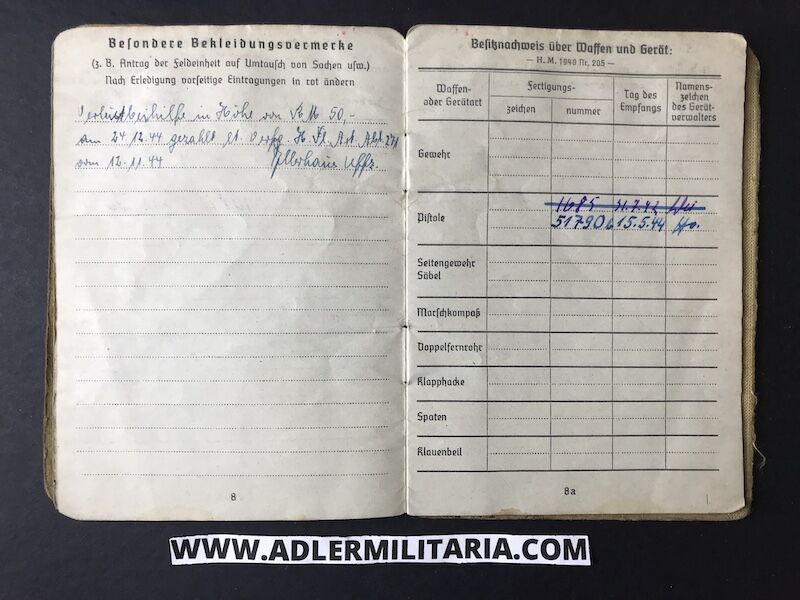 Besondere Bekleidungsvermerke
(z. B. Antrag der Feldeinheit auf Umtausch von Sachen usw.)
Nach Erledigung vorseitige Eintragungen in rot ändern
in Höhe von RM 50,-
am 24.12.44 gezahlt lt. Verfg. H. Fl. Art. Abt. 271
vom 12.11.44 Uffz.
8
Besitznachweis über Waffen und Gerät:
— H. M. 1940 Nr. 205 —
Waffen- oder Gerätart
Fertigungs-
zeichen
nummer
Tag des Empfangs
Namens- zeichen des Gerät- verwalters
Gewehr
Pistole
1685 21.7.42
5179 15.5.44
Seitengewehr
Säbel
Marschkompaß
Doppelfernrohr
Klapphacke
Spaten
Klauenbeil
8a
WWW.ADLERMILITARIA.COM